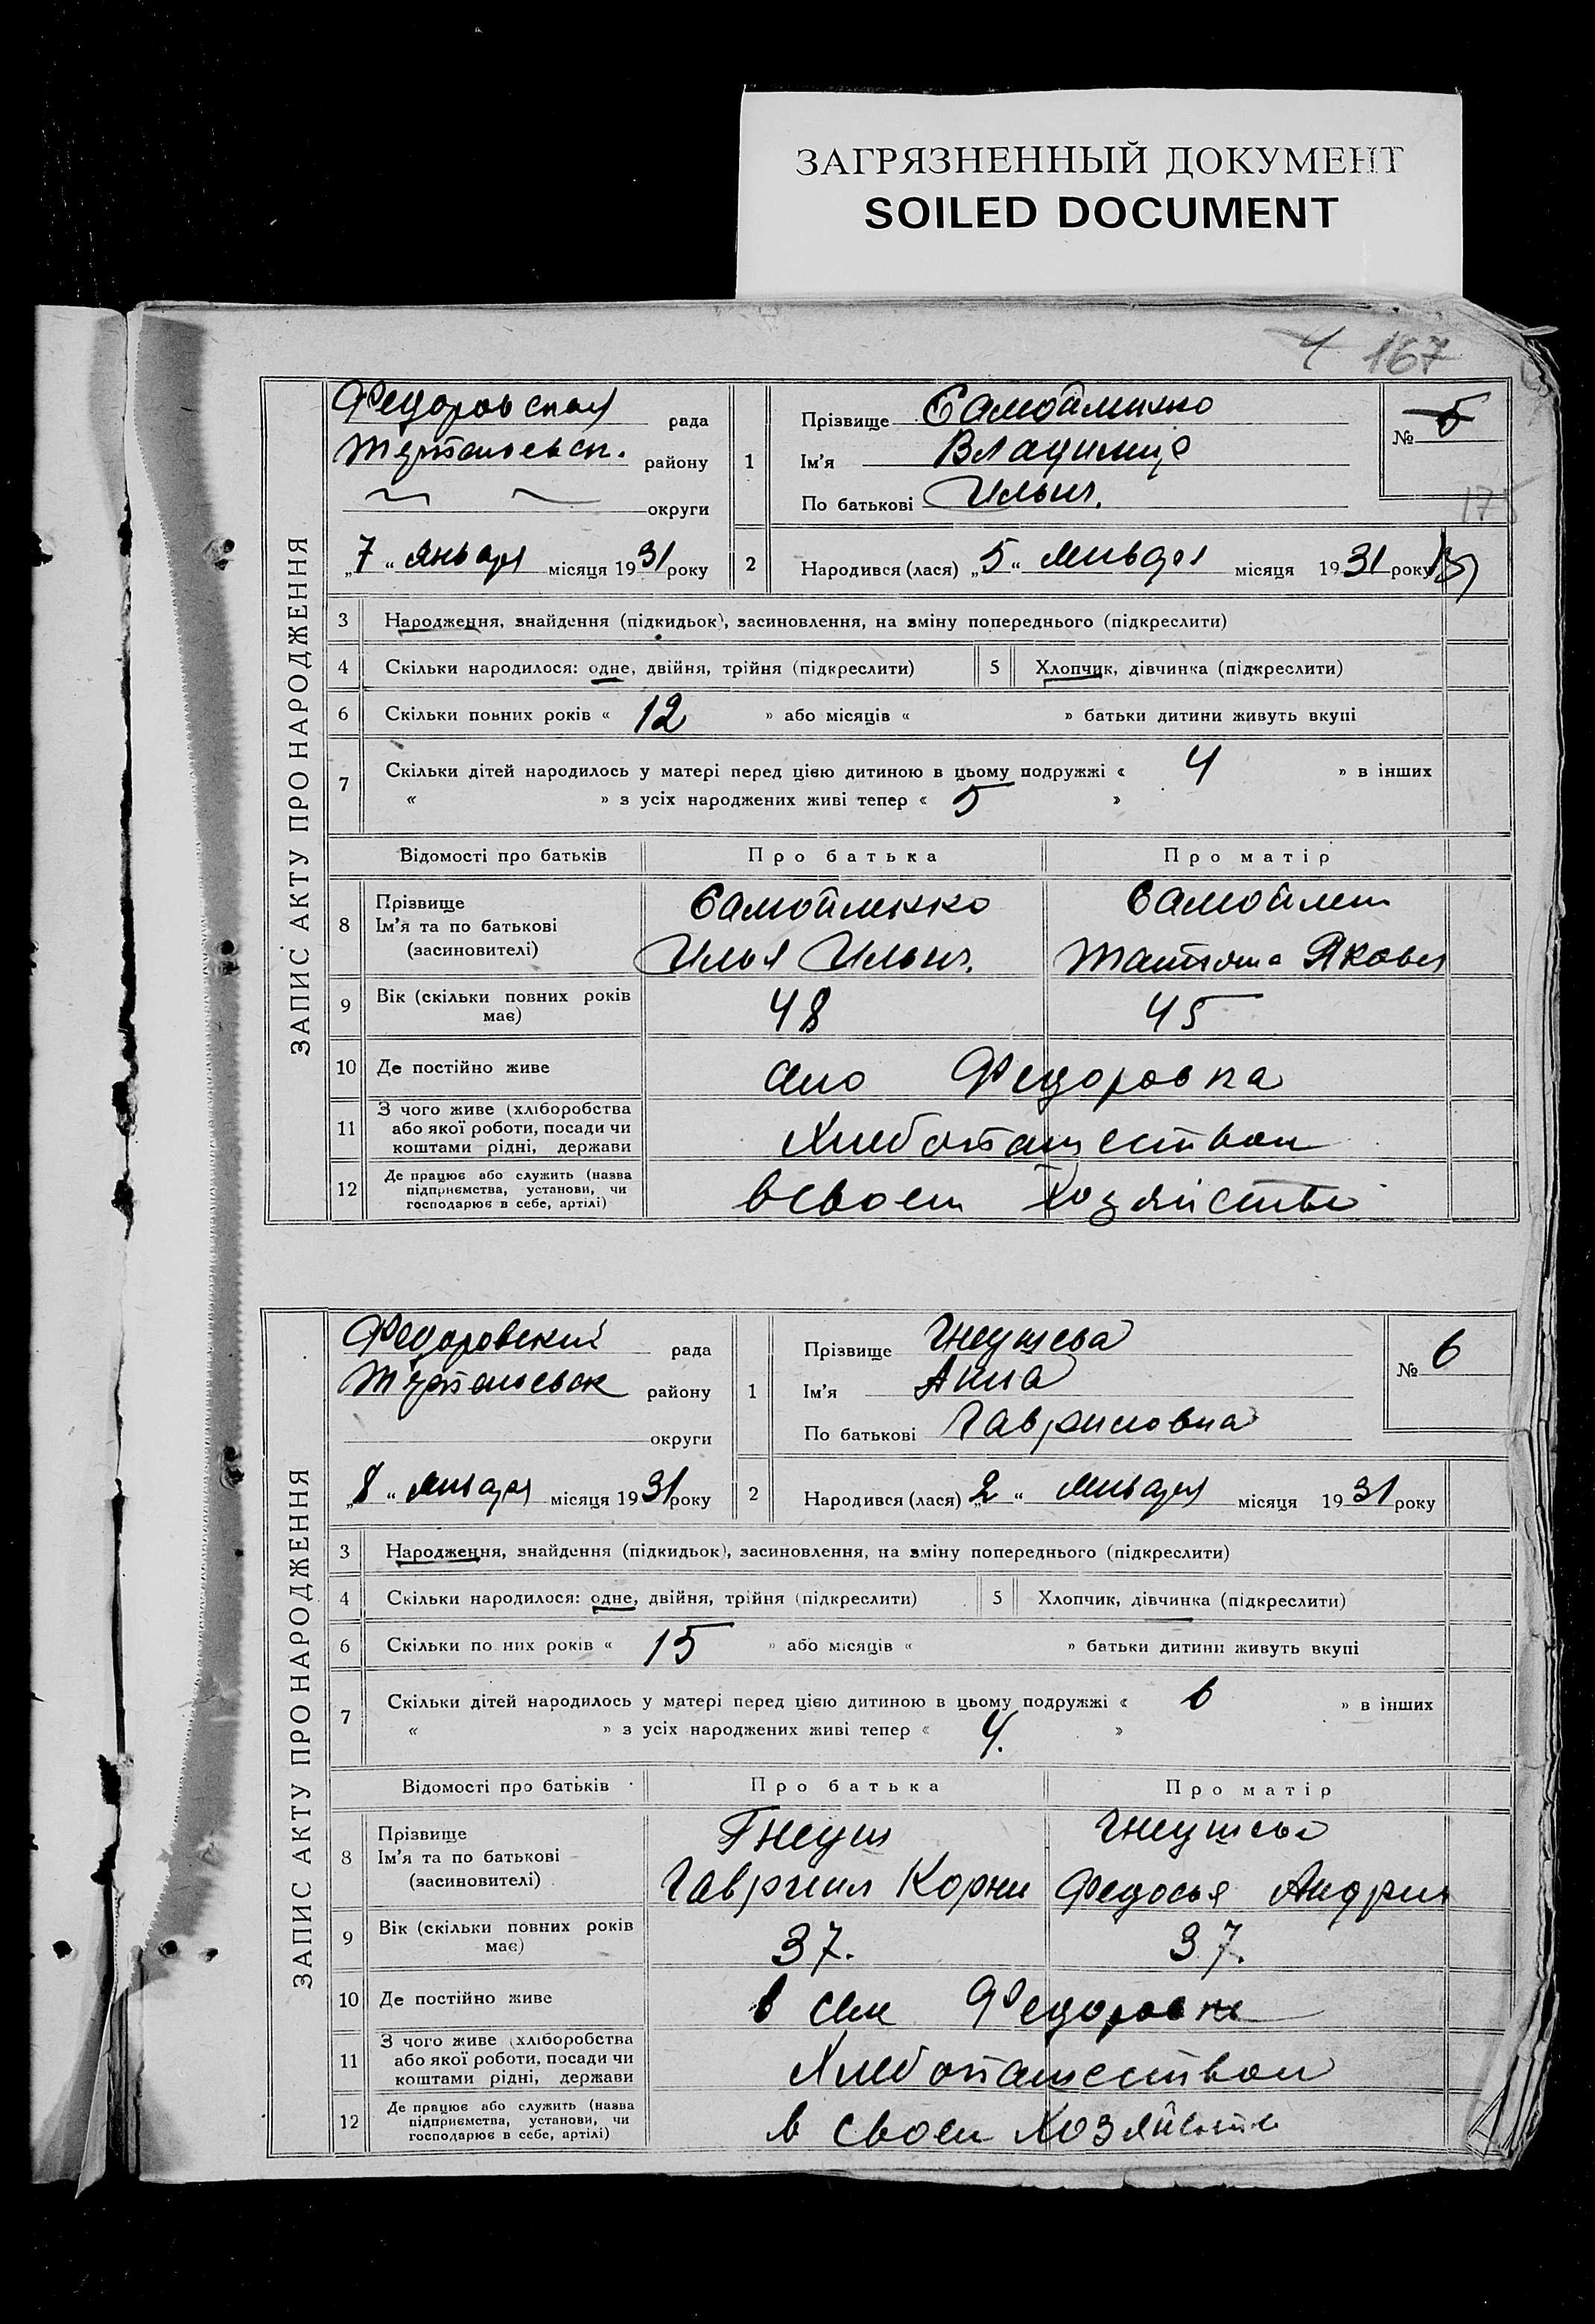 ЗАГРЯЗНЕННЫЙ ДОКУМЕНТ
SOILED DOCUMENT
4 167
ЗАПИС АКТУ ПРО НАРОДЖЕННЯ
Федоровская рада
району
округи
„7“ января місяця 1931 року
1 Прізвище Самойленко
Ім'я Владимир
По батькові Ильич.
№ 5
175
2 Народився (лася) „5“ января місяця 1931 року
3 Народження, знайдення (підкидьок), засиновлення, на зміну попереднього (підкреслити)
4 Скільки народилося: одне, двійня, трійня (підкреслити) 5 Хлопчик, дівчинка (підкреслити)
6 Скільки повних років « 12 » або місяців « » батьки дитини живуть вкупі
7 Скільки дітей народилось у матері перед цією дитиною в цьому подружжі « 4 » в інших
« » з усіх народжених живі тепер « 5 »
Відомості про батьків Про батька Про матір
8 Прізвище
Ім'я та по батькові
(засиновителі)
Самойленко
Илья Ильич.
Самойлен
Татьяна Яковл
9 Вік (скільки повних років має) 48 45
10 Де постійно живе село Федоровка
11 З чого живе (хліборобства
або якої роботи, посади чи
коштами рідні, держави
Хлебопашеством
12 Де працює або служить (назва
підприємства, установи, чи
господарює в себе, артілі)
в своем хозяйстве
ЗАПИС АКТУ ПРО НАРОДЖЕННЯ
Федоровский рада
району
округи
„8“ января місяця 1931 року
1 Прізвище Гнеушева
Ім'я Анна
По батькові Гавриловна
№ 6
2 Народився (лася) „2“ января місяця 1931 року
3 Народження, знайдення (підкидьок), засиновлення, на зміну попереднього (підкреслити)
4 Скільки народилося: одне, двійня, трійня (підкреслити) 5 Хлопчик, дівчинка (підкреслити)
6 Скільки по них років « 15 » або місяців « » батьки дитини живуть вкупі
7 Скільки дітей народилось у матері перед цією дитиною в цьому подружжі « 6 » в інших
« » з усіх народжених живі тепер « 4. »
Відомості про батьків Про батька Про матір
8 Прізвище
Ім'я та по батькові
(засиновителі)
Гнеуш
Гавриил Корне
Гнеушева
Федосья Андрия
9 Вік (скільки повних років має) 37. 37.
10 Де постійно живе в селе Федоровке
11 З чого живе (хліборобства
або якої роботи, посади чи
коштами рідні, держави
Хлебопашеством
12 Де працює або служить (назва
підприємства, установи, чи
господарює в себе, артілі)
в своем хозяйстве